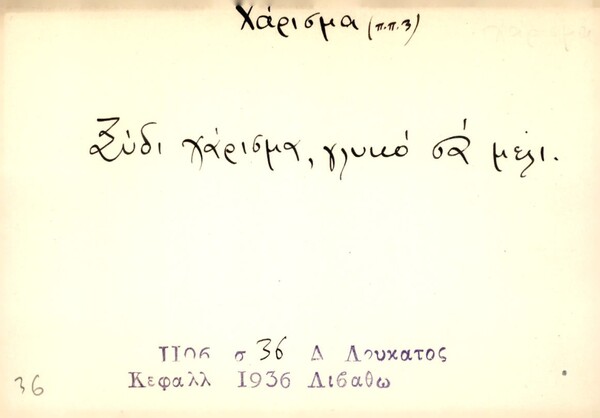 Χάρισμα (π.π.3)
Ξύδι χάρισμα, γλυκό σά μέλι.
σ 36 Δ Λουκατος
36 Κεφαλλ 1936 Λιβαθω